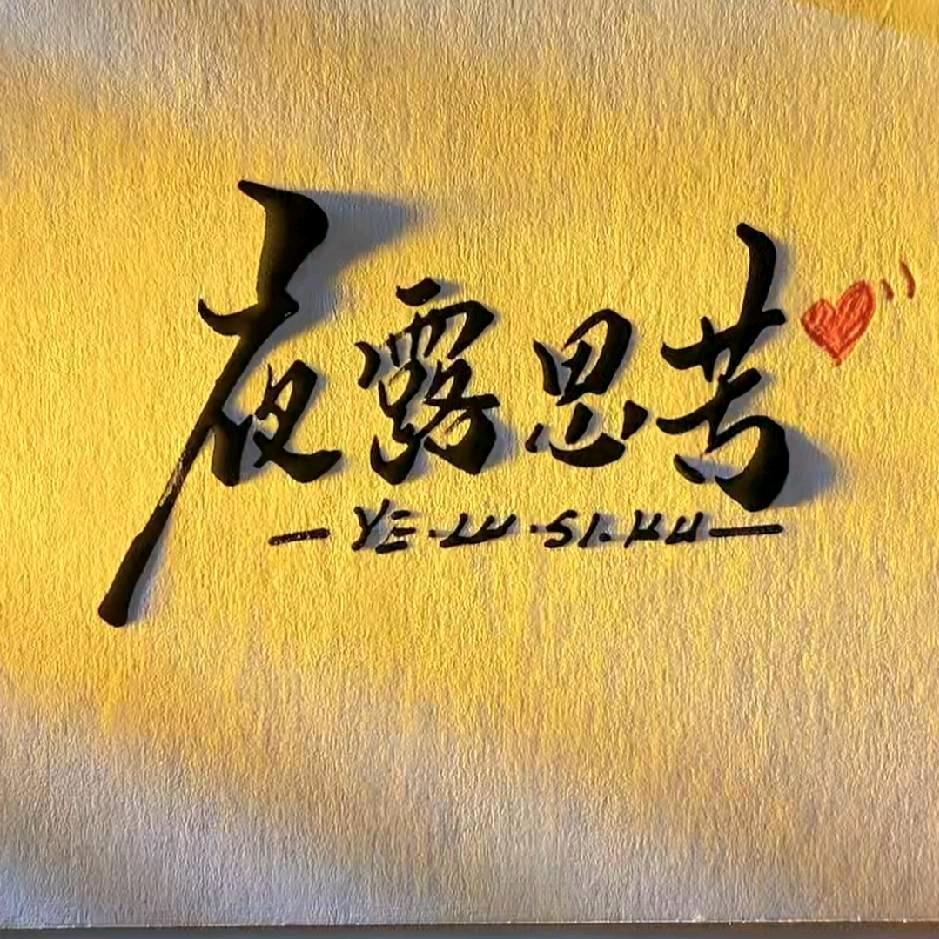 夜露思苦
—YE·LU·SI·KU—